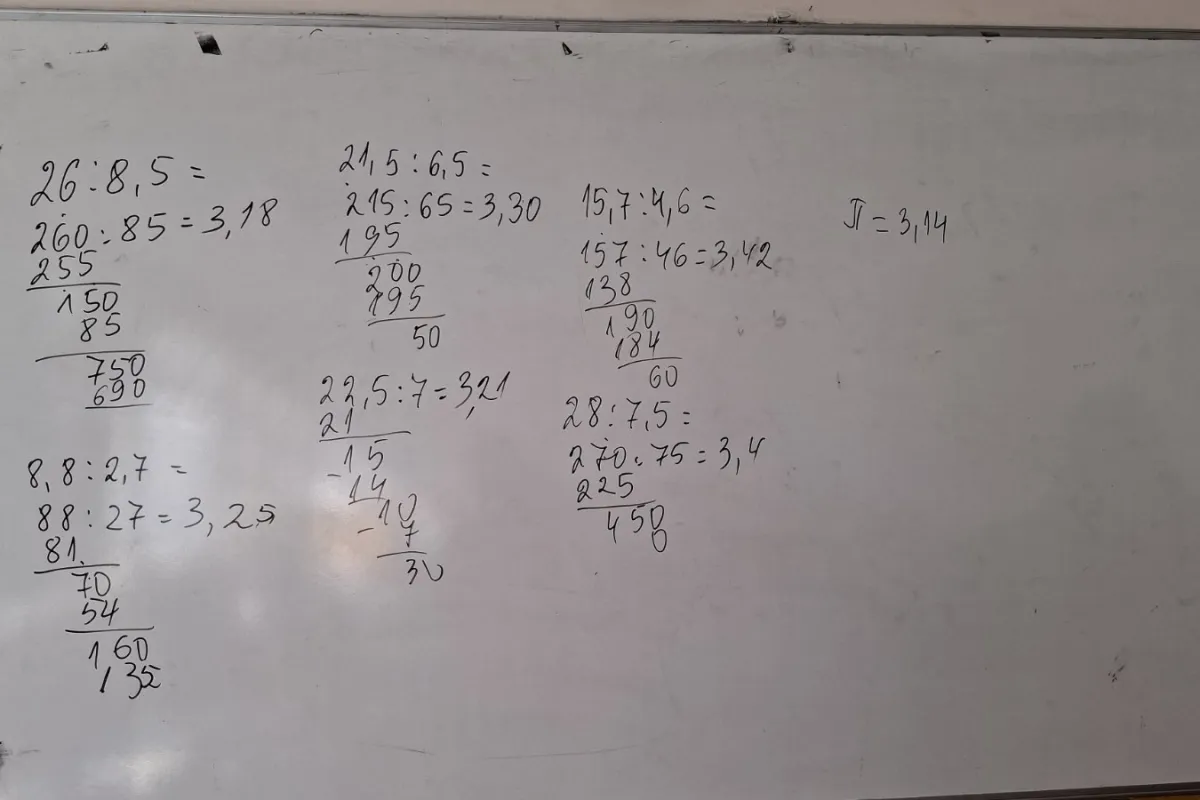 26:8,5=
260:85=3,18
255
150
85
750
690
8,8:2,7=
88:27=3,25
81
70
54
160
135
21,5:6,5=
215:65=3,30
195
200
195
50
22,5:7=3,21
21
15
-14
10
-7
30
15,7:4,6=
157:46=3,42
138
190
184
60
28:7,5=
270:75=3,4
225
450
0
π=3,14